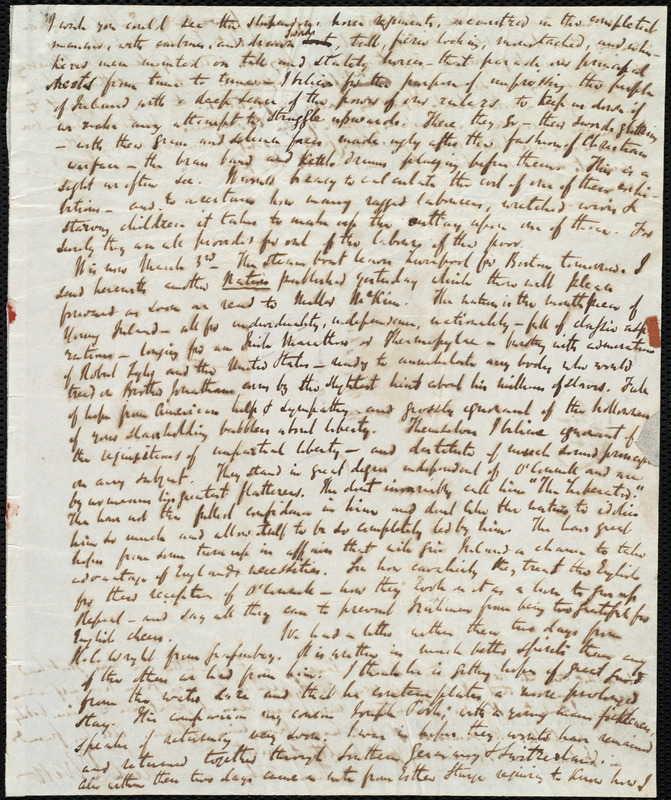 I wish you could see the stupendous horse regiments, accoutred in the completed
manner, with cuirasses, and drawn swords, tall, fierce looking, moustached, and whis-
kered men mounted on tall and stately horses - that parade our principal
streets from time to time - I believe for the purpose of impressing the people
of Ireland with a deep sense of the power of our rulers to keep us down if
we make any attempt to struggle upwards. There they go - their swords glittering
- with their grim and solemn faces made ugly after the fashion of Christian
warfare - the brass band and kettle drums playing before them. This is a
sight we often see. It would be easy to calculate the cost of one of these exhi-
bitions - and to ascertain how many ragged labourers, wretched wives &
starving children it takes to make up the outlay upon one of them. For
surely they are all provided for out of the labour of the poor.
It is now March 3rd - The steam boat leaves Liverpool for Boston tomorrow. I
send herewith another Nation published yesterday which thou will please
forward as soon as read to Miller McKim. The nation is the mouthpiece of
Young Ireland - all for individuality, independence, nationality - full of classic aspi-
rations - longing for an Irish Marathon or Thermopylae - bursting with admiration
of Robert Tyler and the United States - ready to annihilate any body who would
tread on Brother Jonathan's corns by the slightest hint about his millions of slaves. Full
of hope from American help & sympathy - and grossly ignorant of the hollowness
of your slaveholding babblers about liberty. Themselves I believe ignorant of
the requisitions of impartial liberty - and destitute of much sound principle
on any subject. They stand in great degree independent of O'Connell and are
by no means his greatest flatterers. They don't invariably call him "The Liberator."
They have not the fullest confidence in him and don't like the nation to idolise
him so much and allow itself to be so completely led by him. They have great
hopes from some turn up in affairs that will give Ireland a chance to take
advantage of England's necessities. See how cavalierly they treat the English
for their reception of O'Connell - how they look on it as a lure to give up
Repeal - and say all they can to prevent Irishmen from being too grateful for
English cheers. I've had a letter within these two days from
H.C. Wright from Grafenberg. It is written in much better spirits than any
of the others we had from him. I think he is getting hopes of great good
from the water cure and that he contemplates a more prolonged
stay. His companion my cousin Joseph Poole, with a young man
speaks of returning very soon. I was in hopes they would have remained
and returned together through Southern Germany & Switzerland.
Also within these two days came a note from Esther Sturge requesting to know how I